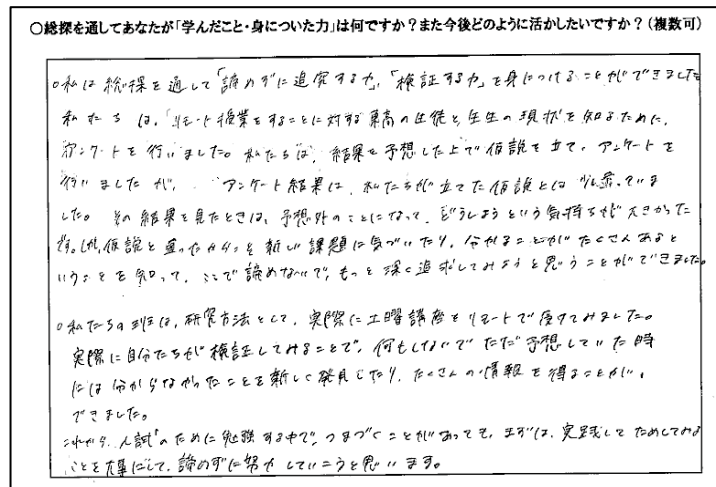 ○総探を通してあなたが「学んだこと・身についた力」は何ですか？また今後どのように活かしたいですか？（複数可）
○私は総探を通して「諦めずに追究する力」、「検証する力」を身につけることができました
私たちは、「リモート授業をすることに対する東高の生徒と先生の現状を知るために、
アンケートを行いました。私たちは、結果を予想した上で仮説を立て、アンケートを
行いましたが、アンケート結果は、私たちが立てた仮説とは少し違っていま
した。その結果を見たときは、予想外のことになって、どうしようという気持ちが大きかった
です。しかし、仮説と違ったからこそ新しい課題に気づいたり、分かることがたくさんあると
いうことを知って、ここで諦めないで、もっと深く追求してみようと思うことができました。
○私たちの班は、研究方法として、実際に土曜講座をリモートで受けてみました。
実際に自分たちが検証してみることで、何もしないでただ予想していた時
には分からなかったことを新しく発見したり、たくさんの情報を得ることが、
できました。
これから、入試のために勉強する中で、つまづくことがあっても、まずは、実践してためしてみる
ことを大事にして、諦めずに努力していこうと思います。